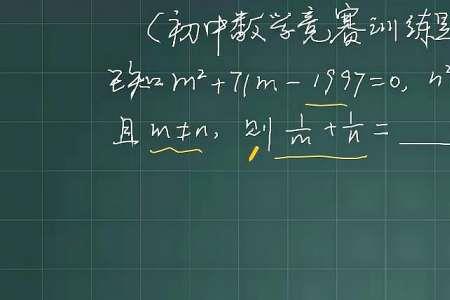 (初中数学竞赛训练题
已知m²+71m-1997=0, n²
且m≠n, 则 1/m + 1/n = ___